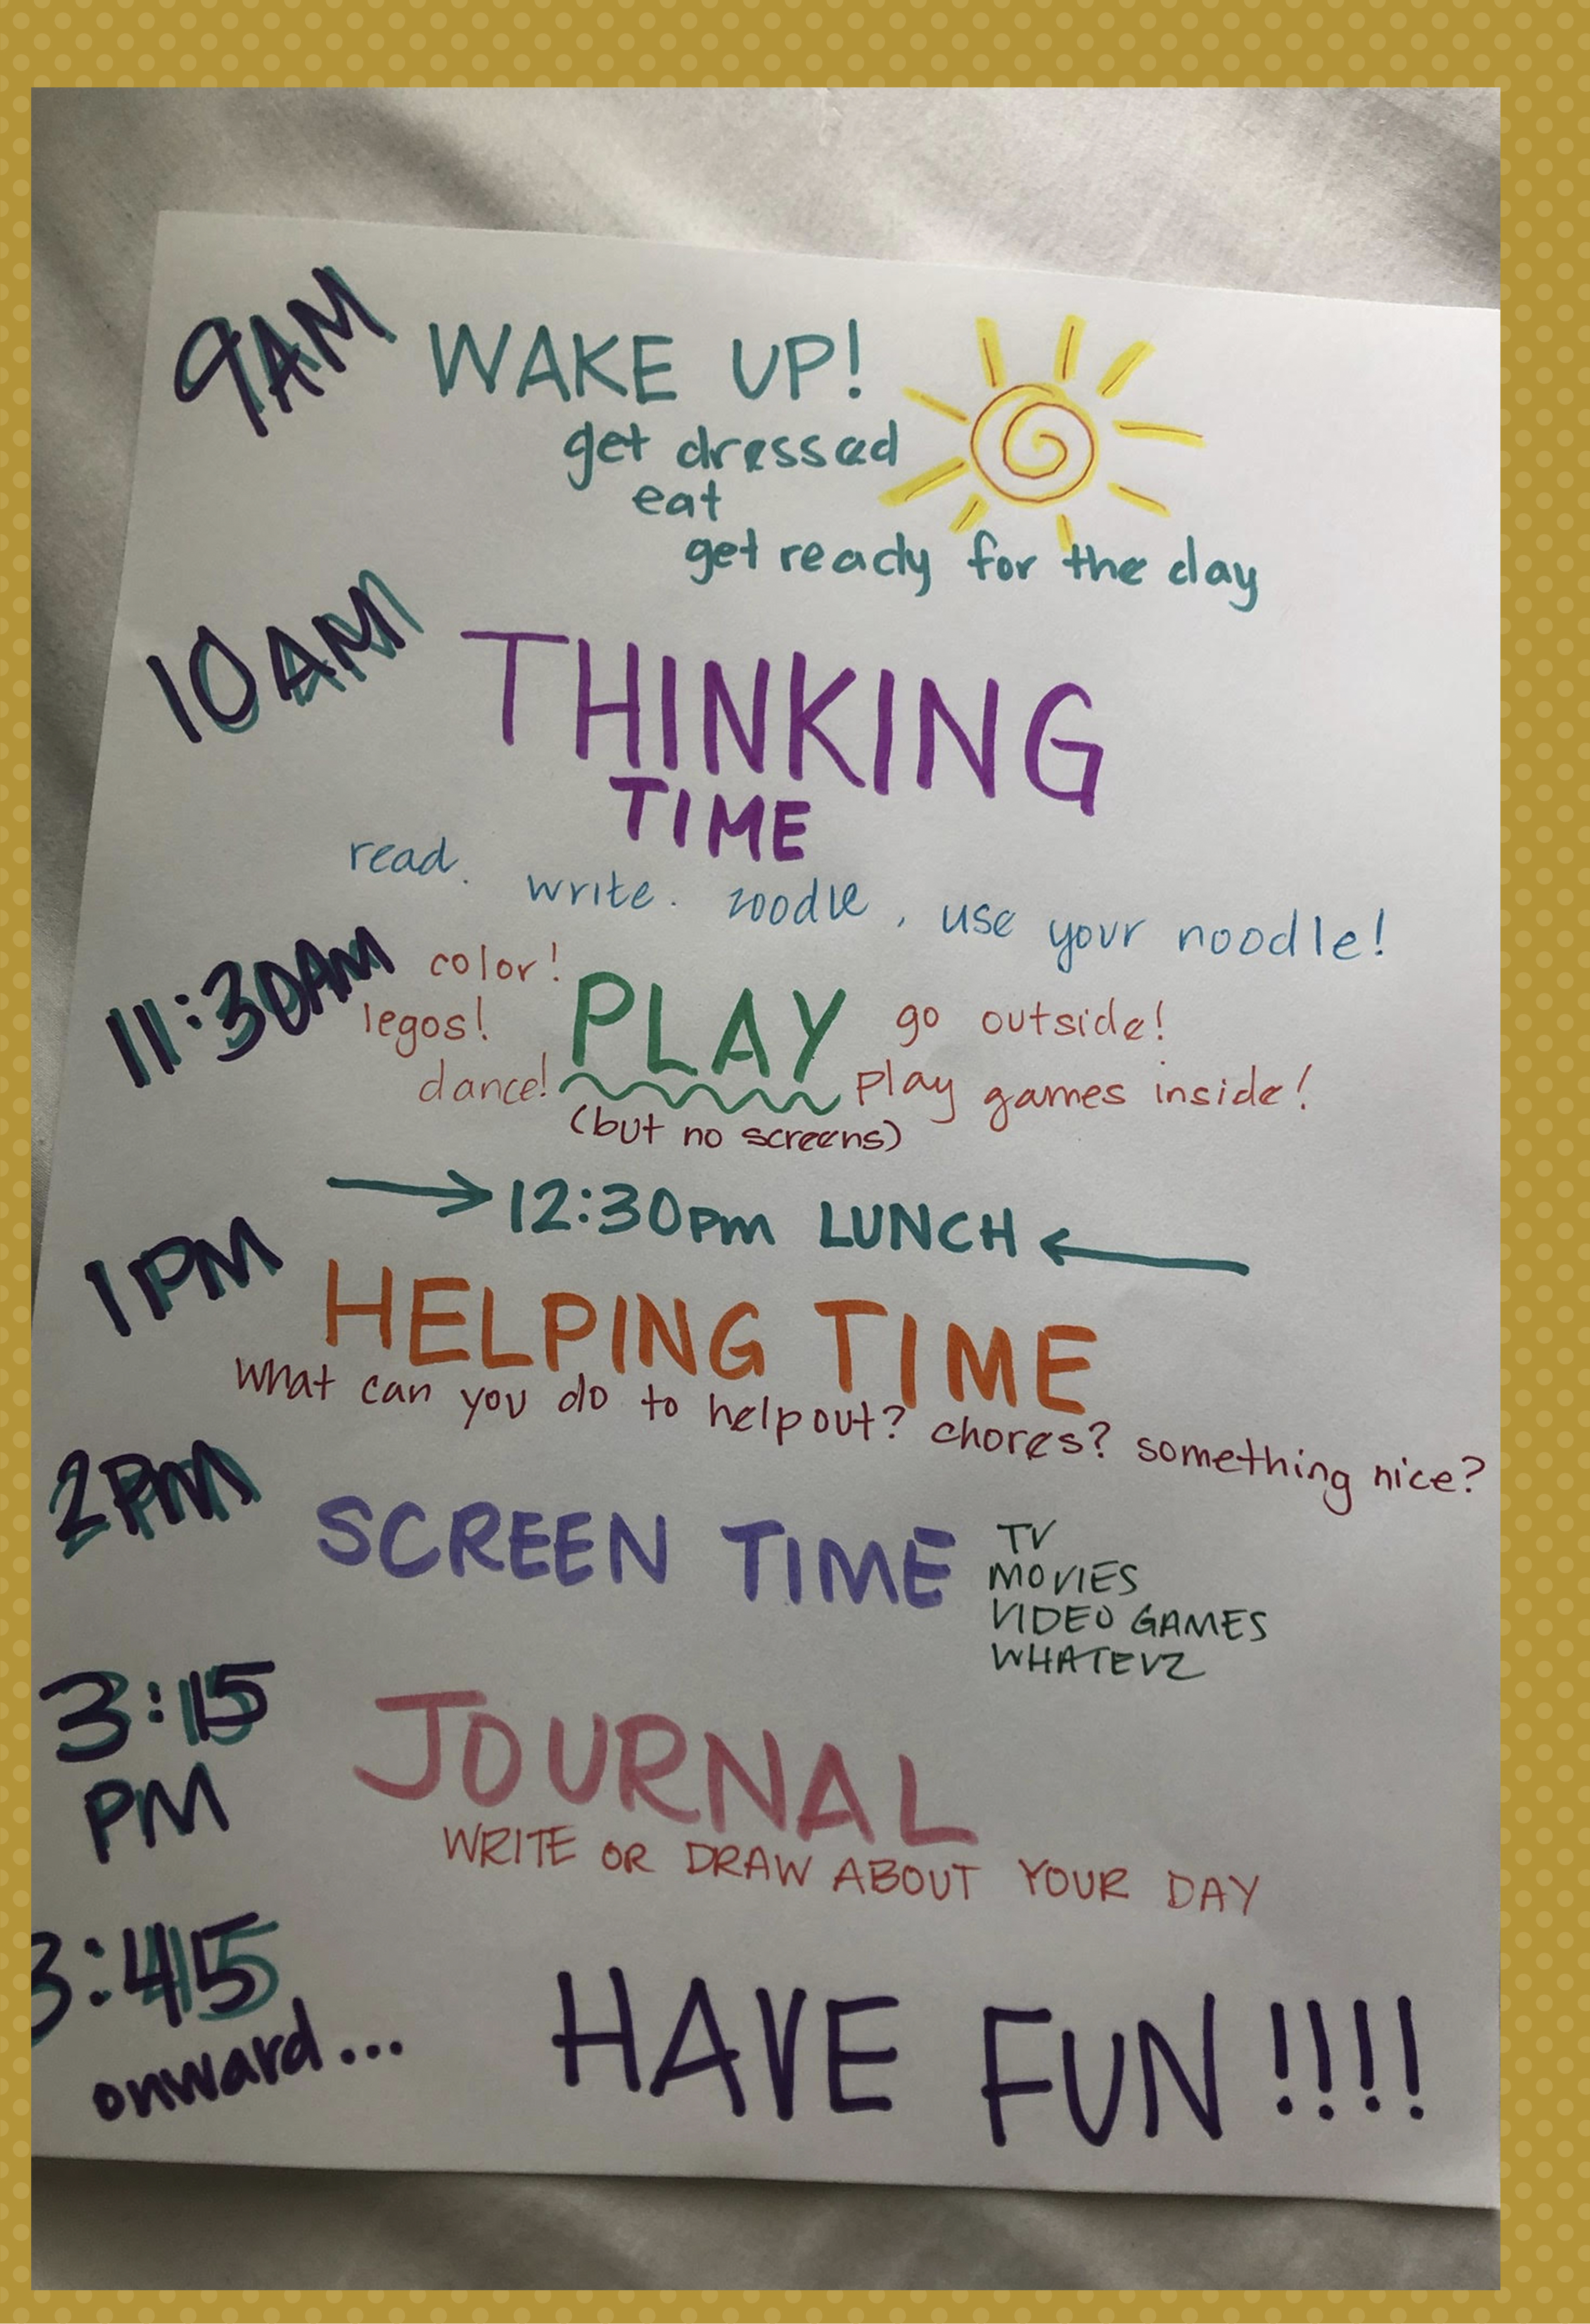 9AM WAKE UP!
get dressed
eat
get ready for the day
10AM THINKING
TIME
read. write. zoodle, use your noodle!
11:30AM color! PLAY go outside!
legos!
dance! play games inside!
(but no screens)
→ 12:30pm LUNCH ←
1PM HELPING TIME
What can you do to help out? chores? something nice?
2PM SCREEN TIME TV
MOVIES
VIDEO GAMES
WHATEVZ
3:15
PM JOURNAL
WRITE OR DRAW ABOUT YOUR DAY
3:45
onward... HAVE FUN!!!!